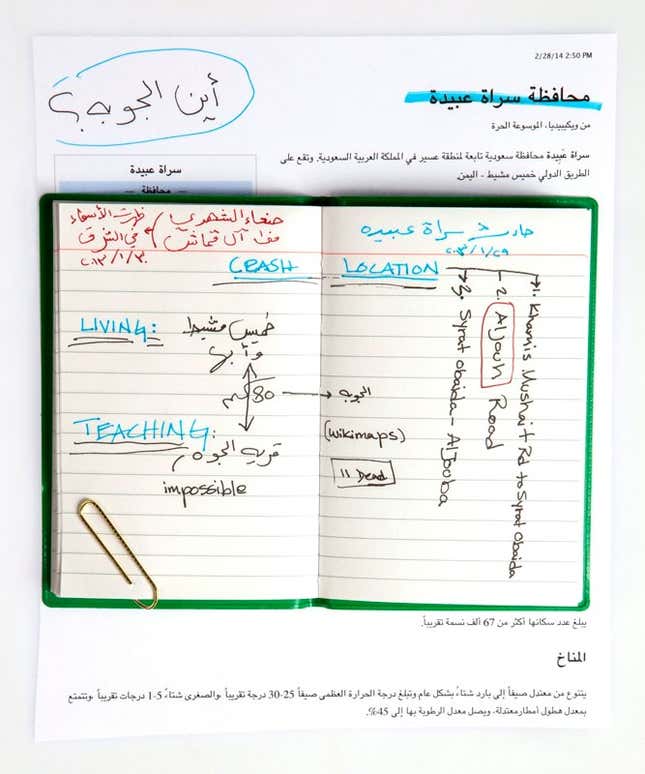 2/28/14 2:50 PM
محافظة سراة عبيدة
من ويكيبيديا، الموسوعة الحرة
أين الجوبه؟
سراة عبيدة
— محافظة —
سراة عبيدة محافظة سعودية تابعة لمنطقة عسير في المملكة العربية السعودية. وتقع على
الطريق الدولي خميس مشيط - اليمن.
صنعاء الشهري
ظهرت الأسماء
في الشرق
٢٠١٣/١/٣٠
CRASH
LIVING:
خميس مشيط
وأبها
80 كم
TEACHING:
قرية الجوه
impossible
حادث سراة عبيده
٢٠١٣/١/٢٩
LOCATION
1. Khamis Mushait Rd to Syrat Obaida
2. AlJouh Road
3. Syrat Obaida - AlJouba
الجوبه
(Wikimaps)
11 Dead
يبلغ عدد سكانها أكثر من 67 ألف نسمة تقريباً.
المناخ
يتنوع من معتدل صيفاً إلى بارد شتاءً بشكل عام وتبلغ درجة الحرارة العظمى صيفاً 25-30 درجة تقريباً ،والصغرى شتاءً 1-5 درجات تقريباً ،وتتمتع
بمعدل هطول أمطار معتدلة، ويصل معدل الرطوبة بها إلى 45%.